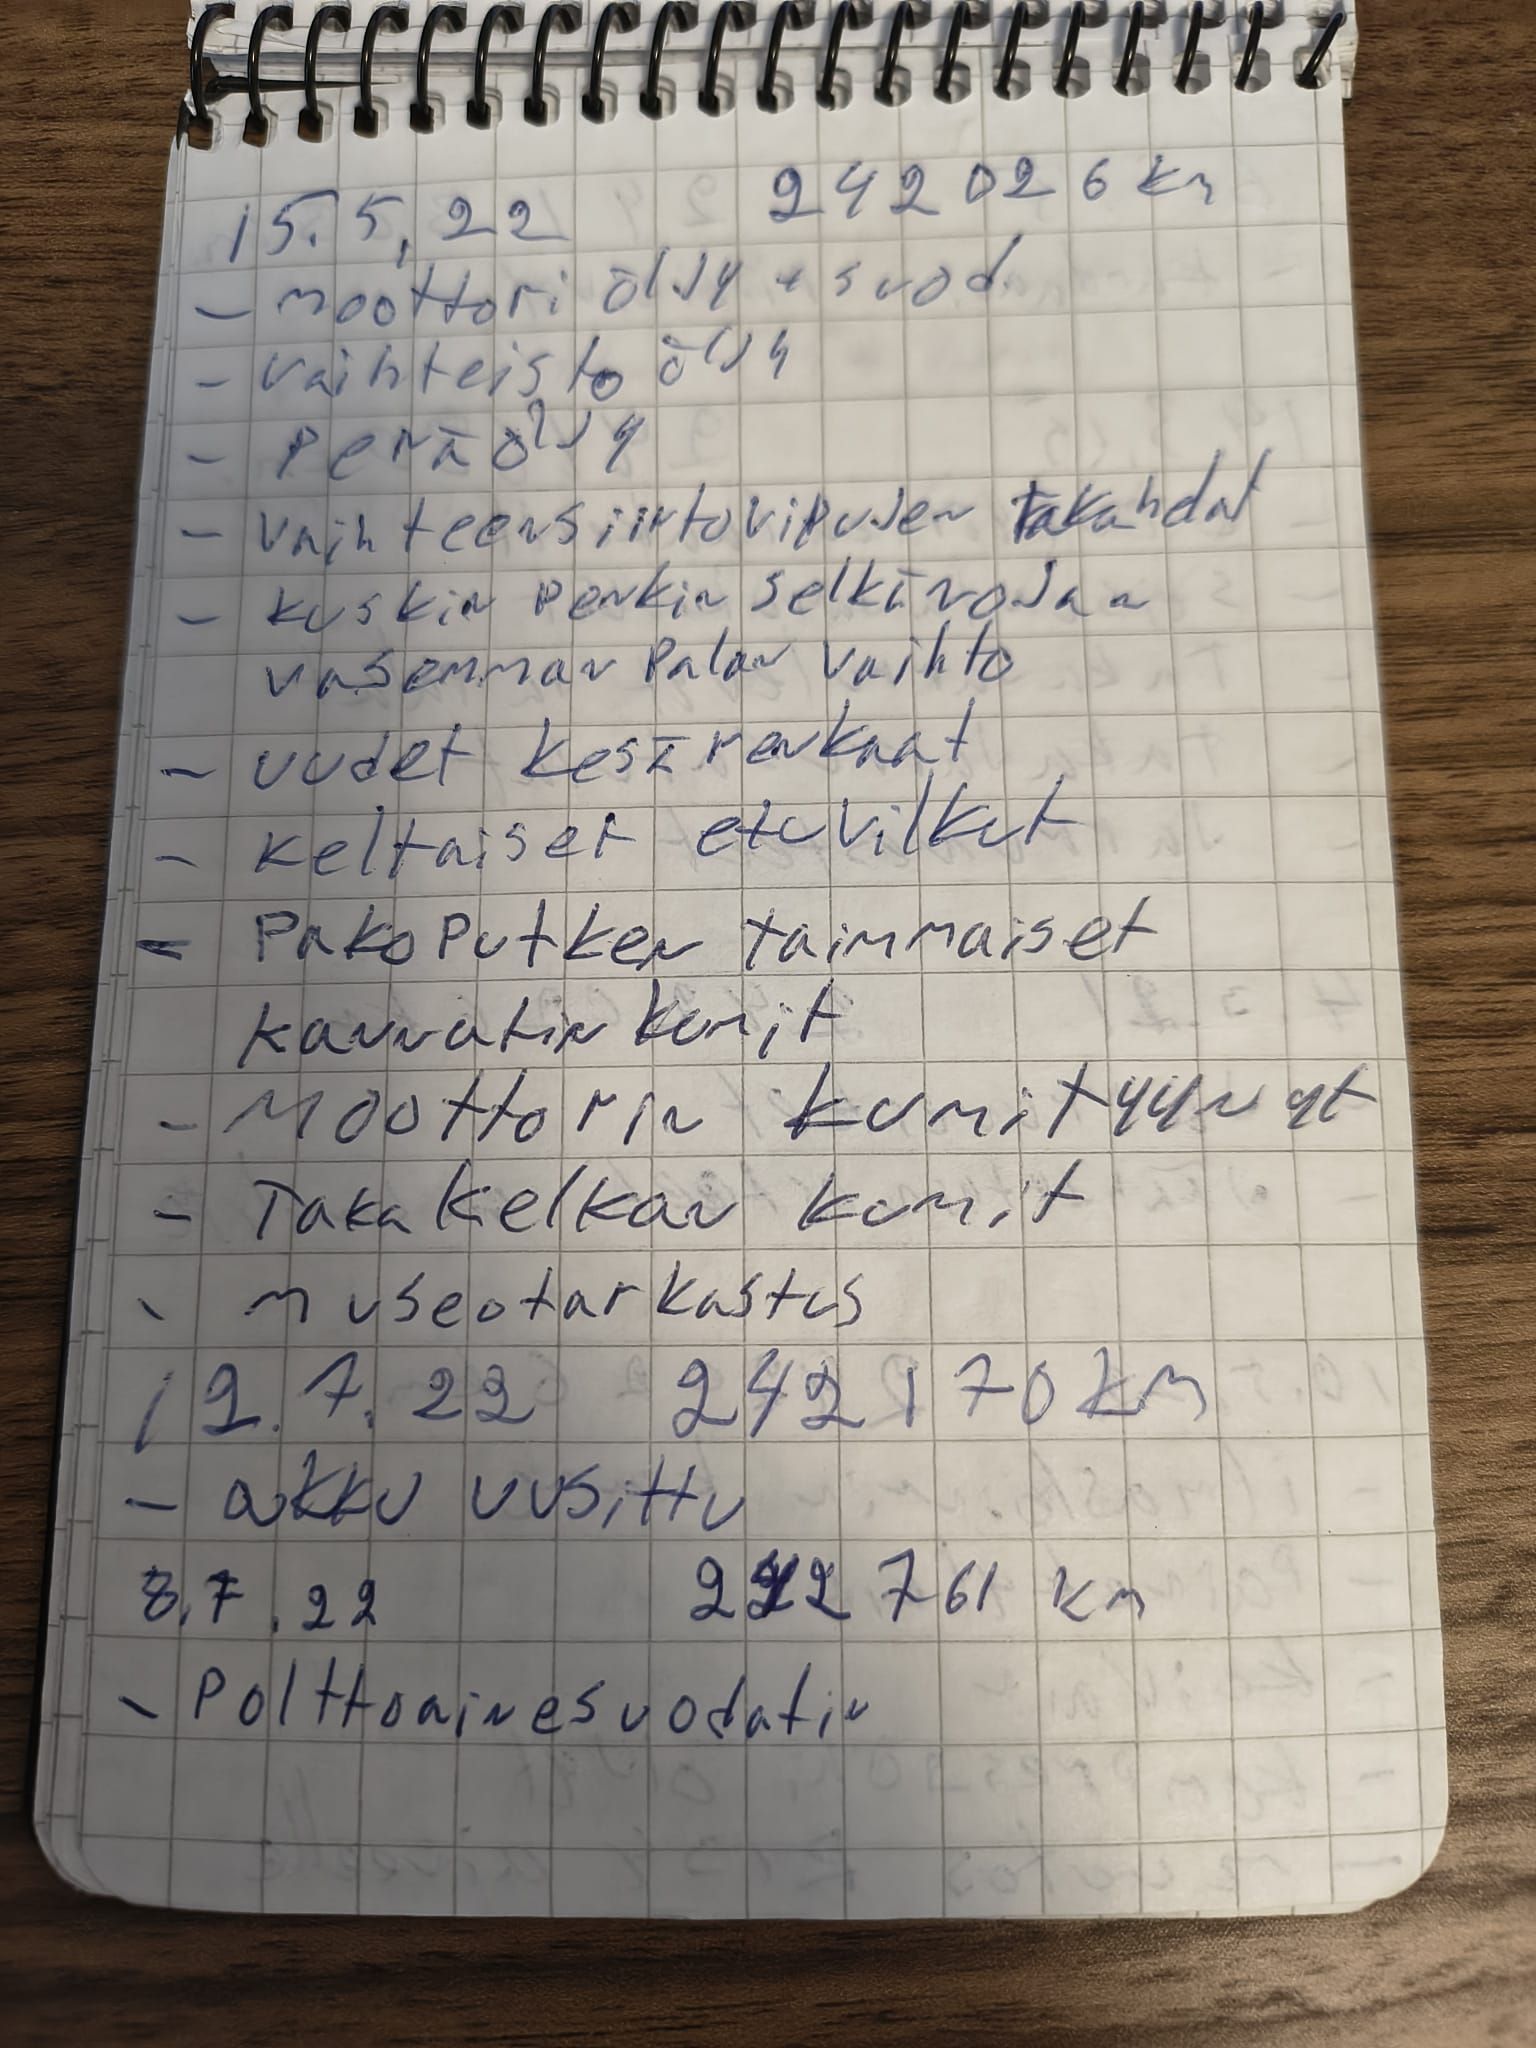 15.5.22 242026 km
- moottori öljy + suod.
- vaihteisto öljy
- Peräöljy
- vaihteensiirtovipujen
- kuskin Penkin selkänojan
vasemman Palan vaihto
- uudet kesärenkaat
- keltaiset etuvilkut
- Pakoputken taimmaiset
kannatinkumit
- Moottorin kumityynyt
- Takakelkan kumit
- museotarkastus
12.7.22 242170 km
- akku uusittu
8.7.22 242 761 km
- Polttoainesuodatin